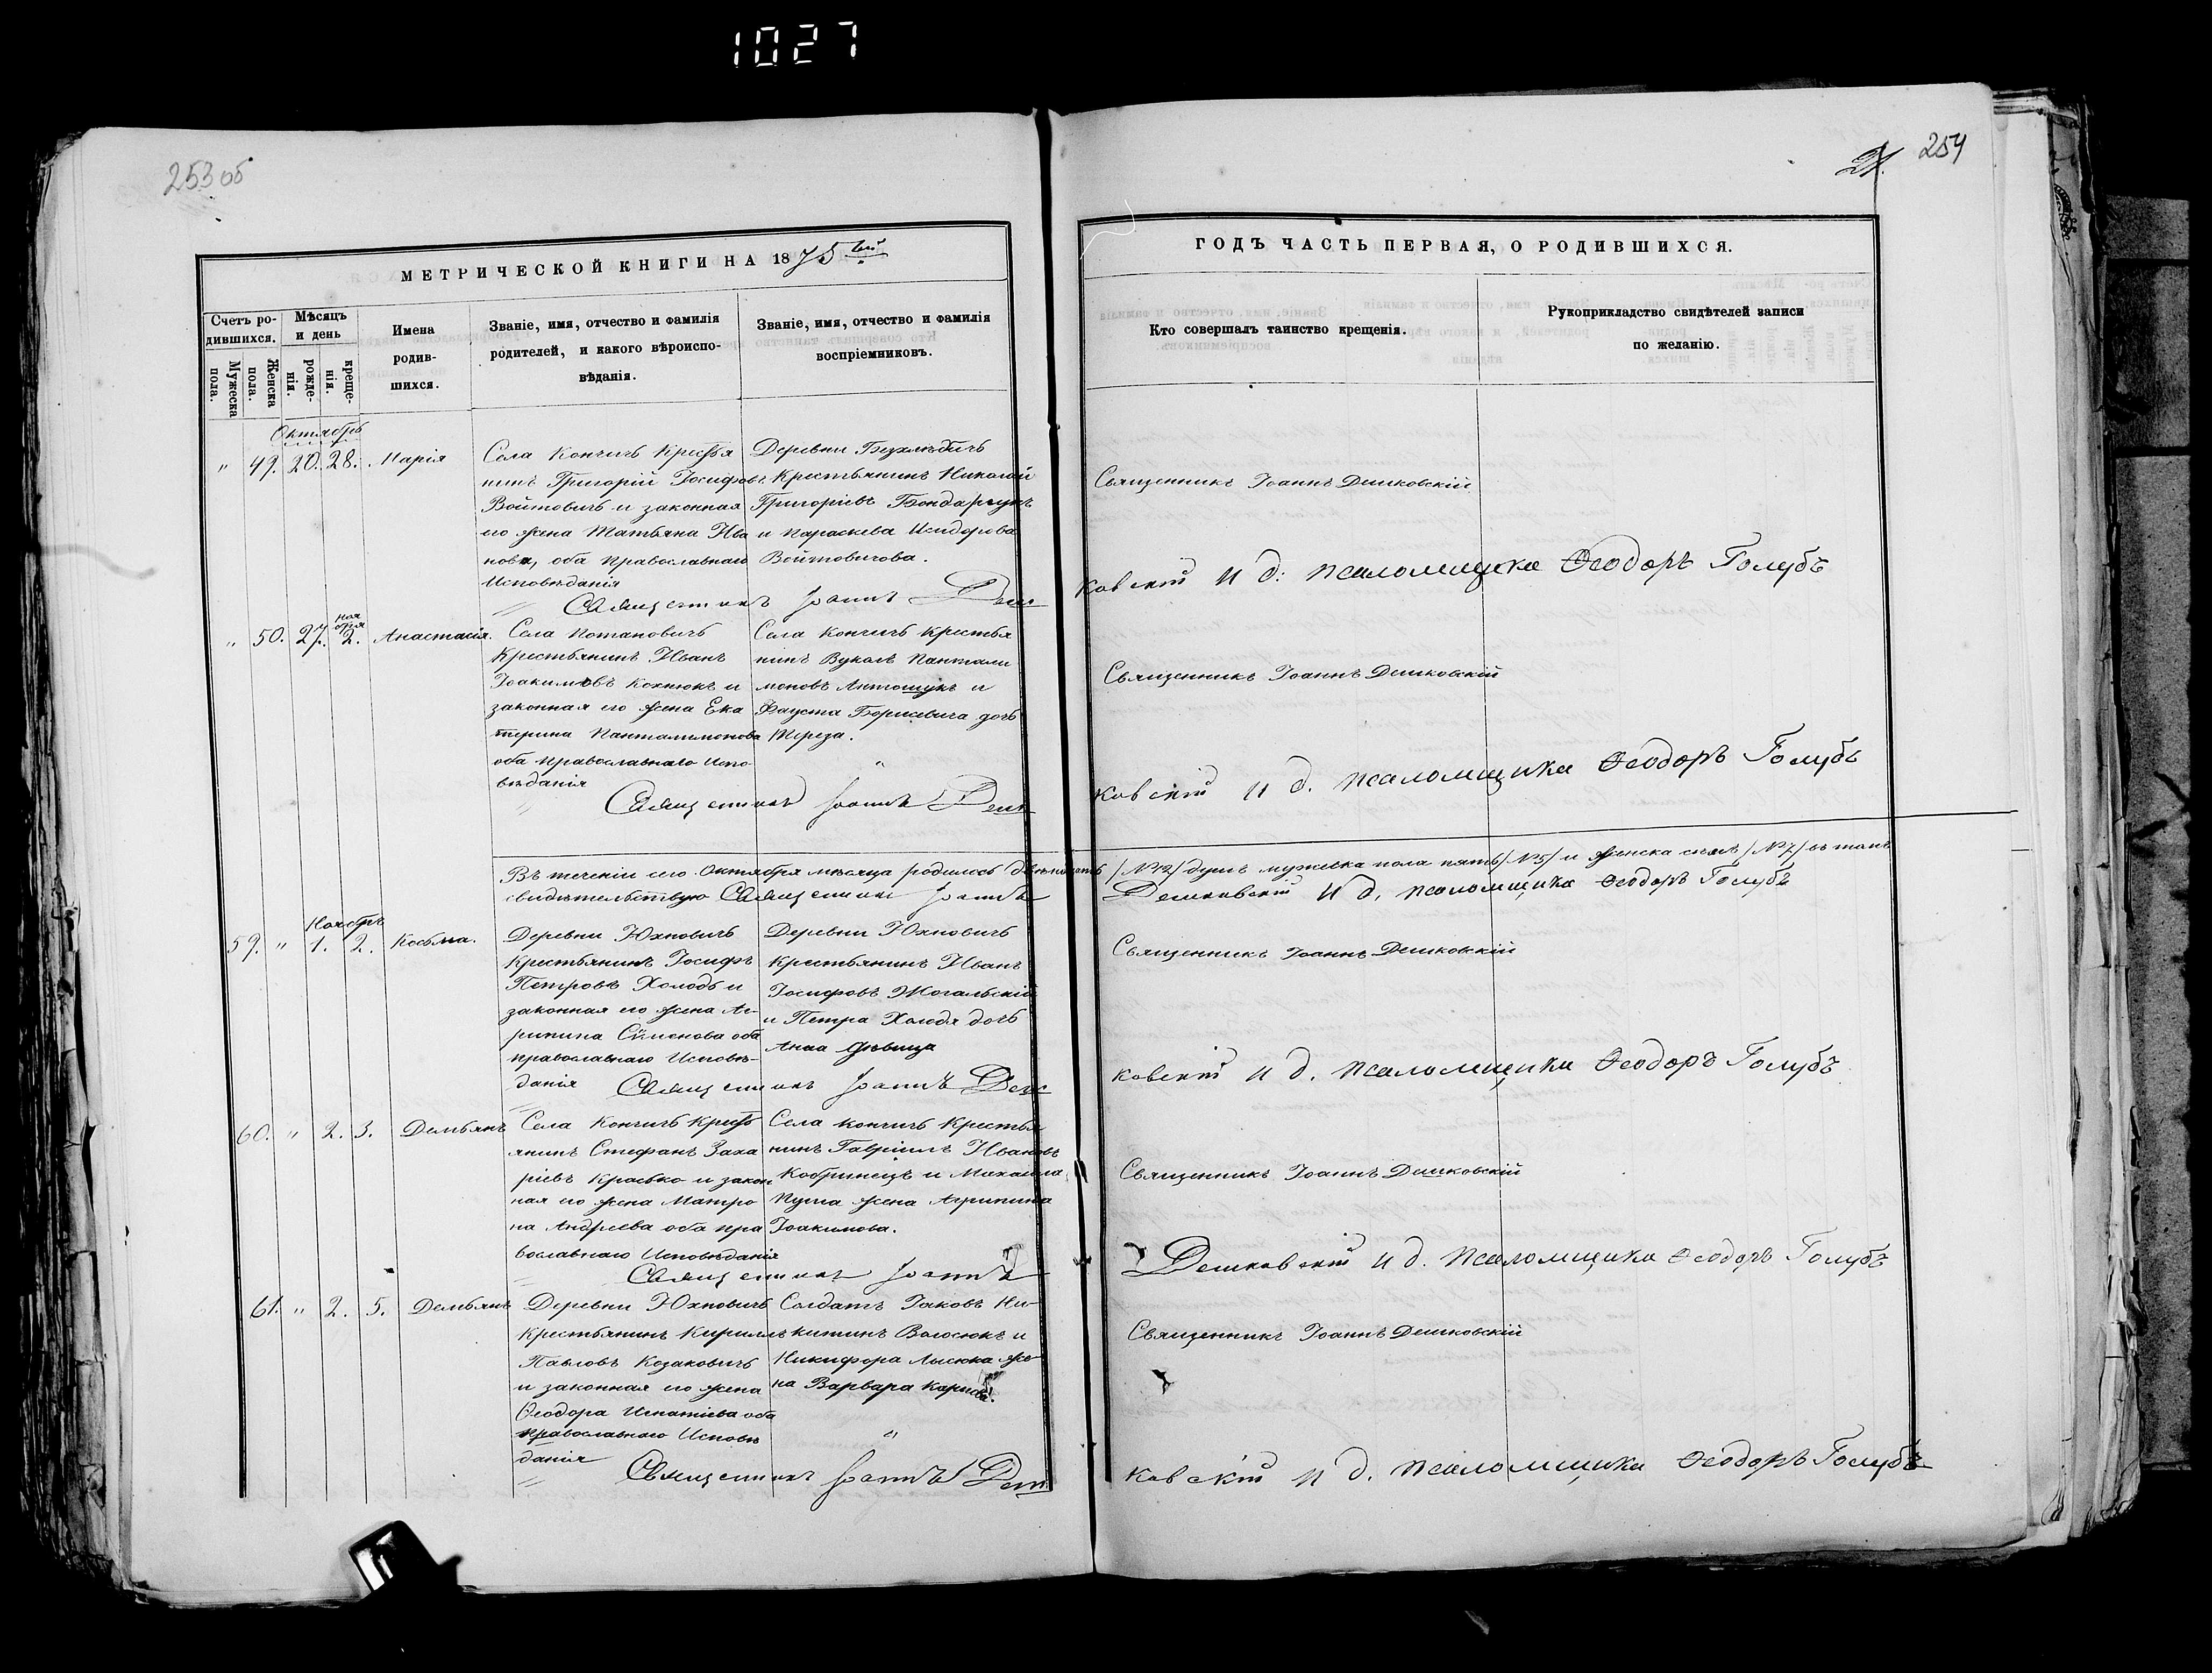 1027
253 об
254
МЕТРИЧЕСКОЙ КНИГИ НА 1875 тый
ГОДЪ ЧАСТЬ ПЕРВАЯ, О РОДИВШИХСЯ.
Счетъ родившихся.
Мужеска пола.
Женска пола.
Мѣсяцъ и день
рожденія.
крещенія.
Имена родившихся.
Званіе, имя, отчество и фамилія
родителей, и какого вѣроиспо-
вѣданія.
Званіе, имя, отчество и фамилія
воспріемниковъ.
Кто совершалъ таинство крещенія.
Рукоприкладство свидѣтелей записи
по желанію.
Октябрь
" 49. 20. 28. Марія
Села Кончичъ Крестья
нинъ Григорій Іосифовъ
Войтовичъ и законная
его жена Татьяна Ива
нова, оба православнаго
Исповѣданія
Деревни Безхлѣбичъ
Крестьянинъ Николай
Григоріевъ Бондарчукъ
и Параскева Исидорова
Войтовичова.
Священникъ Іоаннъ Дешковскій
Священникъ Іоаннъ Деш
ковскій И д: псаломщика Ѳеодоръ Голубъ
" 50. 27. ноября 2. Анастасія.
Села Потаповичъ
Крестьянинъ Иванъ
Іоакимовъ Кохнюкъ и
законная его жена Ека
терина Панталимонова
оба православнаго Испо-
вѣданія
Села Кончичъ Крестья
нинъ Вуколъ Пантали
моновъ Антощукъ и
Фауста Борисевича дочь
Тереза.
Священникъ Іоаннъ Дешковскій
Священникъ Іоаннъ Деш
ковскій И д. псаломщика Ѳеодоръ Голубъ
Въ теченіи сего Октября мѣсяца родилось двѣнадцать /№12/ душъ мужеска пола пять /№5/ и женска семь /№7/ въ томъ
свидѣтельствую Священникъ Іоаннъ Дешковскій И д. псаломщика Ѳеодоръ Голубъ
Ноябрь
59. " 1. 2. Косьма.
Деревни Юхновичъ
Крестьянинъ Іосифъ
Петровъ Холодъ и
законная его жена Аг-
рипина Сѵменова оба
православнаго Исповѣ-
данія
Деревни Юхновичъ
Крестьянинъ Иванъ
Іосифовъ Жогальскій
и Петра Холодя дочь
Анна дѣвица
Священникъ Іоаннъ Дешковскій
Священникъ Іоаннъ Деш
ковскій И д. псаломщика Ѳеодоръ Голубъ
60. " 2. 3. Демьянъ
Села Кончичъ Кресть
янинъ Стефанъ Заха
ріевъ Красько и закон
ная его жена Матро
на Андреева оба пра
вославнаго Исповѣданія
Села Кончичъ Крестья
нинъ Гавріилъ Ивановъ
Кобринецъ и Михаила
Пуша жена Агрипина
Іоакимова.
Священникъ Іоаннъ Дешковскій
Священникъ Іоаннъ
Дешковскій И д. Псаломщика Ѳеодоръ Голубъ
61. " 2. 5. Демьянъ
Деревни Юхновичъ
Крестьянинъ Кириллъ
Павловъ Козаковичъ
и законная его жена
Ѳеодора Игнатіева оба
православнаго Исповѣ
данія
Солдатъ Іаковъ Ни-
китинъ Волосюкъ и
Никифора Лысюка же-
на Варвара
Священникъ Іоаннъ Дешковскій
Священникъ Іоаннъ Деш
ковскій И д. псаломщика Ѳеодоръ Голубъ